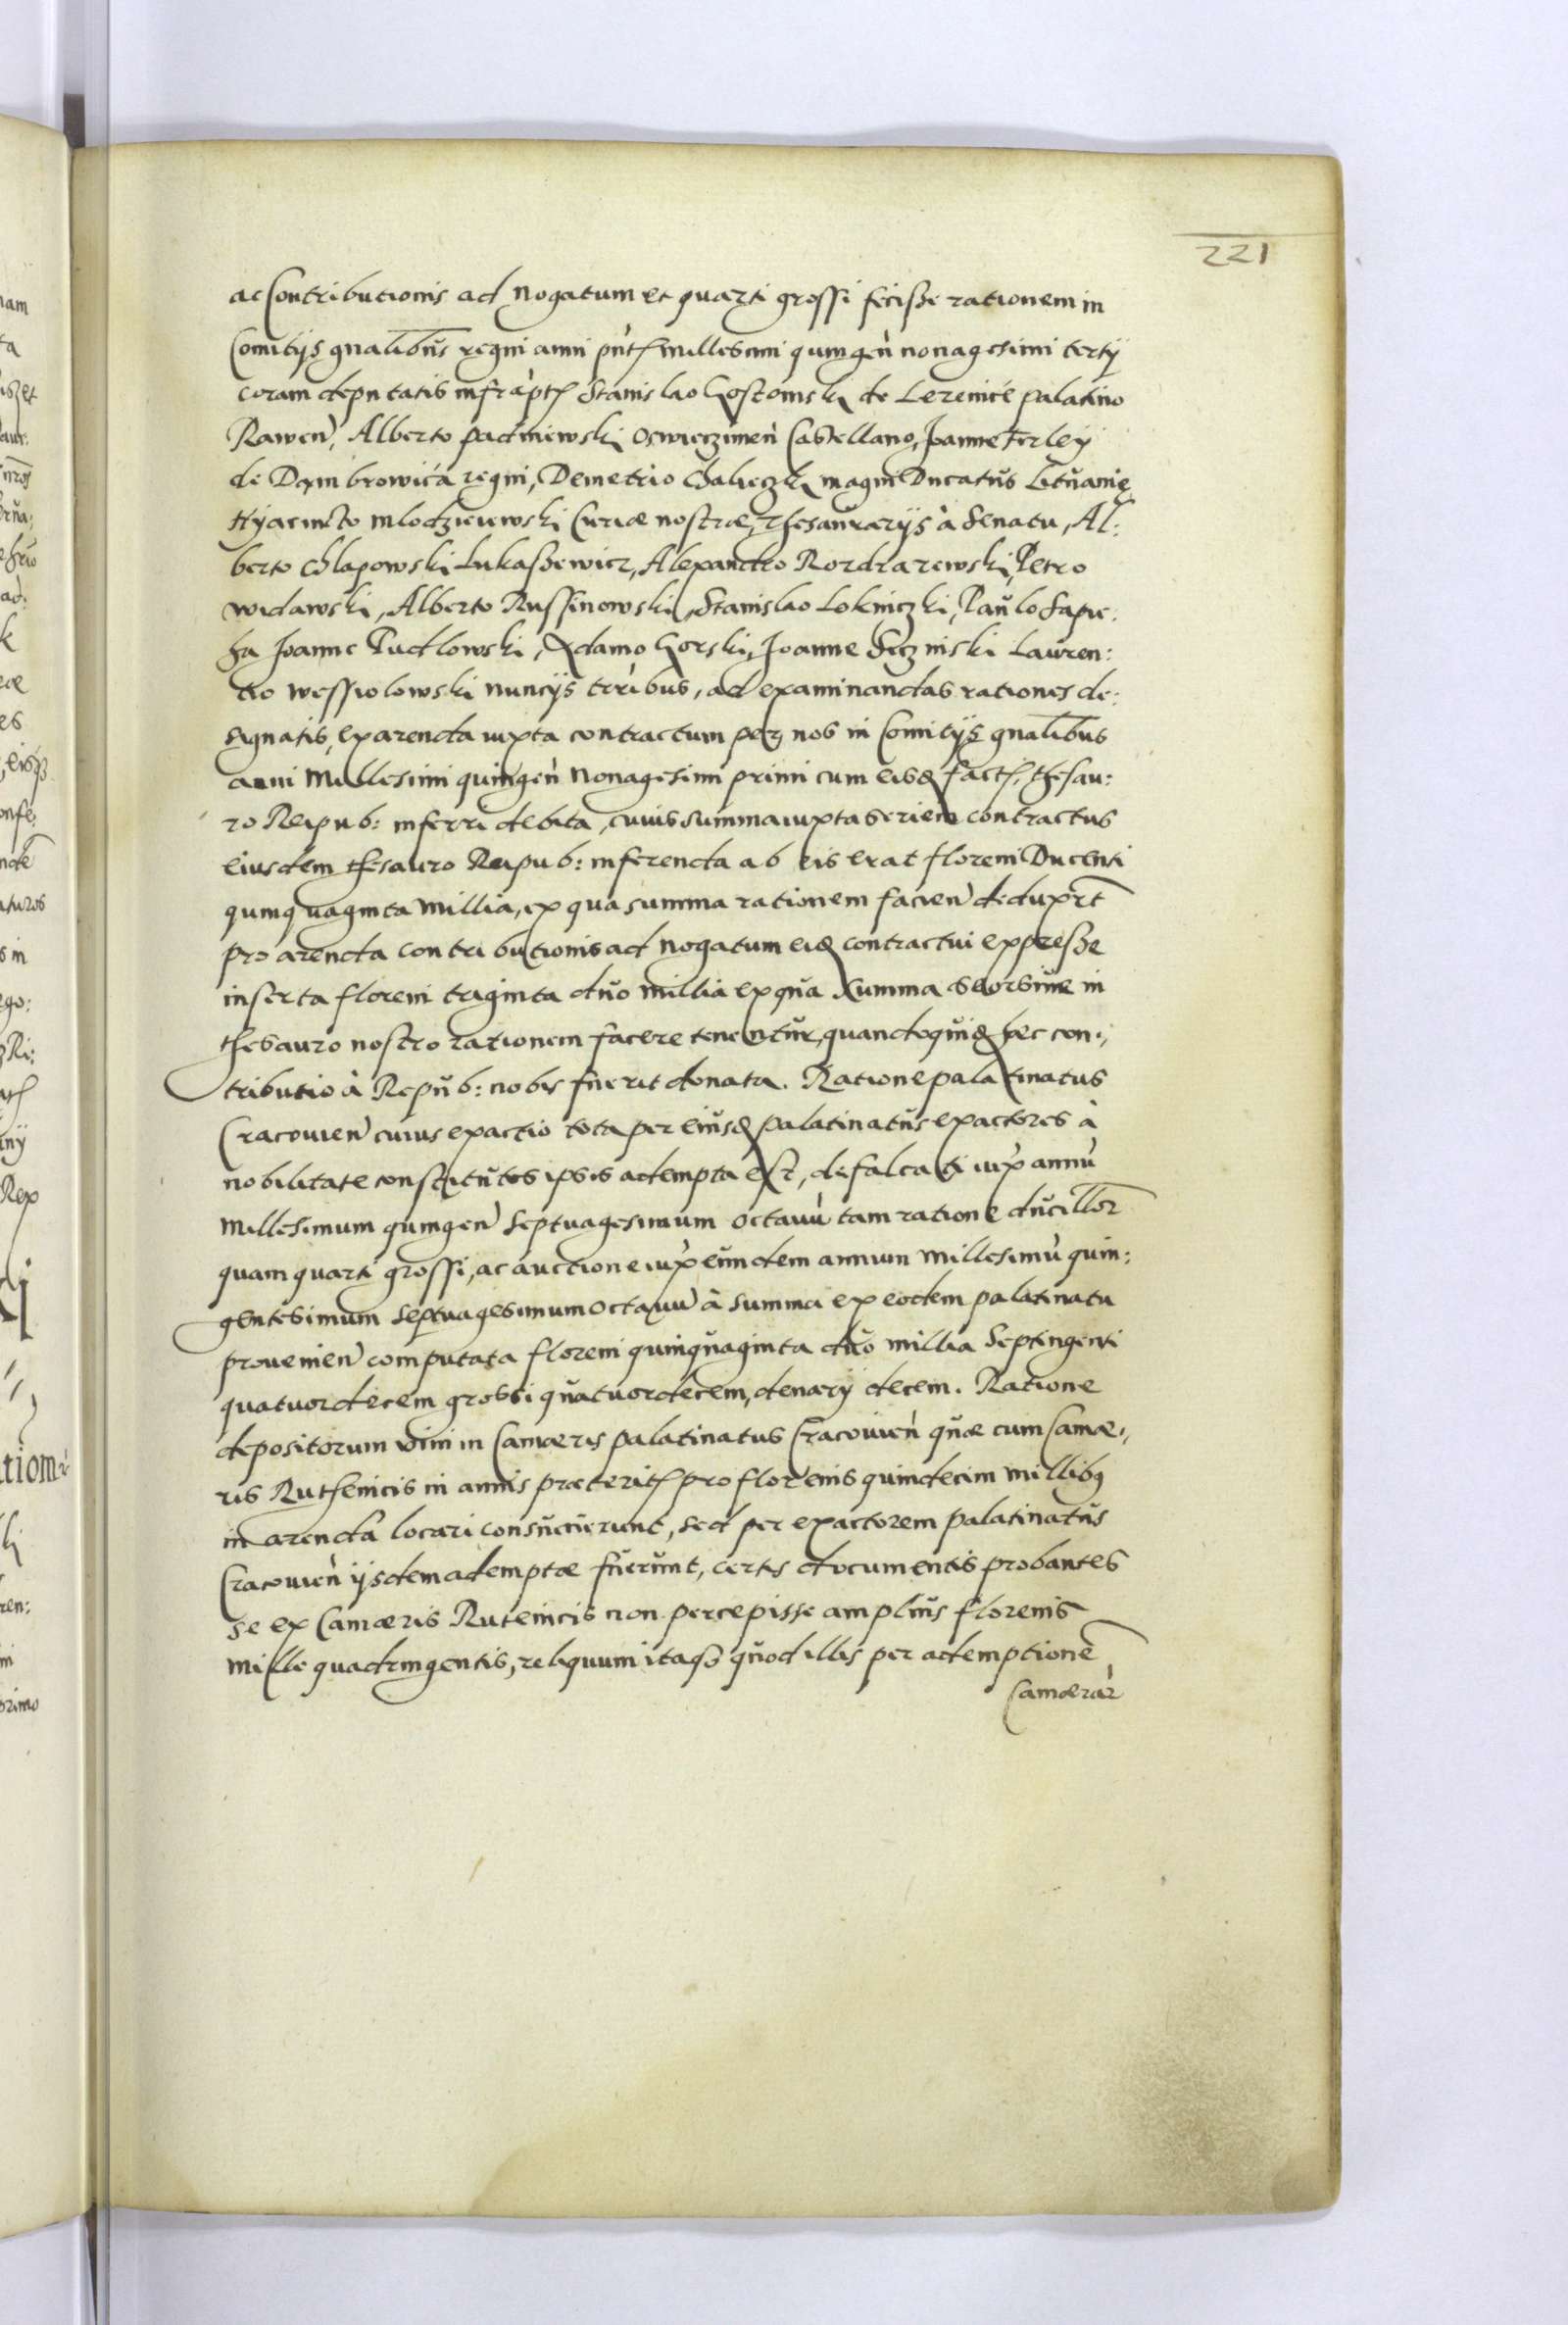 221
ac Contributionis ad Nogatum et quarti grossi fecisse rationem in
Comitijs gnalibus regni anni pnt millesimi quingen nonagesimi tertij
coram deputatis infrapt Stanislao Gostomski de Lezenice palatino
Rawen, Alberto padniewski Oswieczimen Castellano, Joanne Firley
de Dambrowica regni, Demetrio Chaleczki magni Ducatus Lituanie
Hyacincto Mlodzieiewski Curiæ nostræ, Thesaurarijs à Senatu, Al:
berto Chlapowski Lukaszewicz, Alexandro Rozdrazewski, Petro
widawski, Alberto Russinowski, Stanislao Lokniczki, Paulo Sapie:
ha Joanne Pudlowski, Adamo Gorski, Joanne Secziniski Lauren:
tio Wessiolowski nuncijs teribus, ad examinandas rationes de:
signatis, ex arenda iuxta contractum per nos in Comitijs gnalibus
anni Millesimi quingen Nonagesimi primi cum eisd fact, thesau:
ro Reipub: inferri debita, cuius summa iuxta seriem contractus
eiusdem thesauro Reipub: inferenda ab eis erat floreni Ducenti
quinquaginta Millia, ex qua summa rationem facien deduxrt
pro arenda contributionis ad Nogatum eid contractui expresse
inserta floreni triginta duo millia ex qua summa seorsiue in
thesauro nostro rationem facere tenentur, quandoquid hec con:
tributio à Repub: nobis fuerit donata. Ratione palatinatus
Cracouien cuius exactio tota per eiusd palatinatus exactores à
nobilitate constitutos ipsis adempta est, defalcati iux annu
Millesimum quingen Septuagesimum octauu tam ratione ducillor
quam quarti grossi, ac auctione iux eundem annum Millesimu quin:
gentesimum Septuagesimum octauu à summa ex eodem palatinatu
prouenien computata floreni quinquaginta duo millia Septingenti
quatuordecem grossi quatuordecem, denarij decem. Ratione
depositorum vini in Camæris palatinatus Cracouien quæ cum Camæ:
ris Ruthenicis in annis præterit pro florenis quindecim millibq
in arenda locari consueuerunt, sed per exactorem palatinatus
Cracouien ijsdem ademptæ fuerunt, certis documentis probantes
se ex Camæris Rutenicis non percepisse amplius florenis
mille quadringentis, reliquum itaq quod illis per ademptione
Camærar